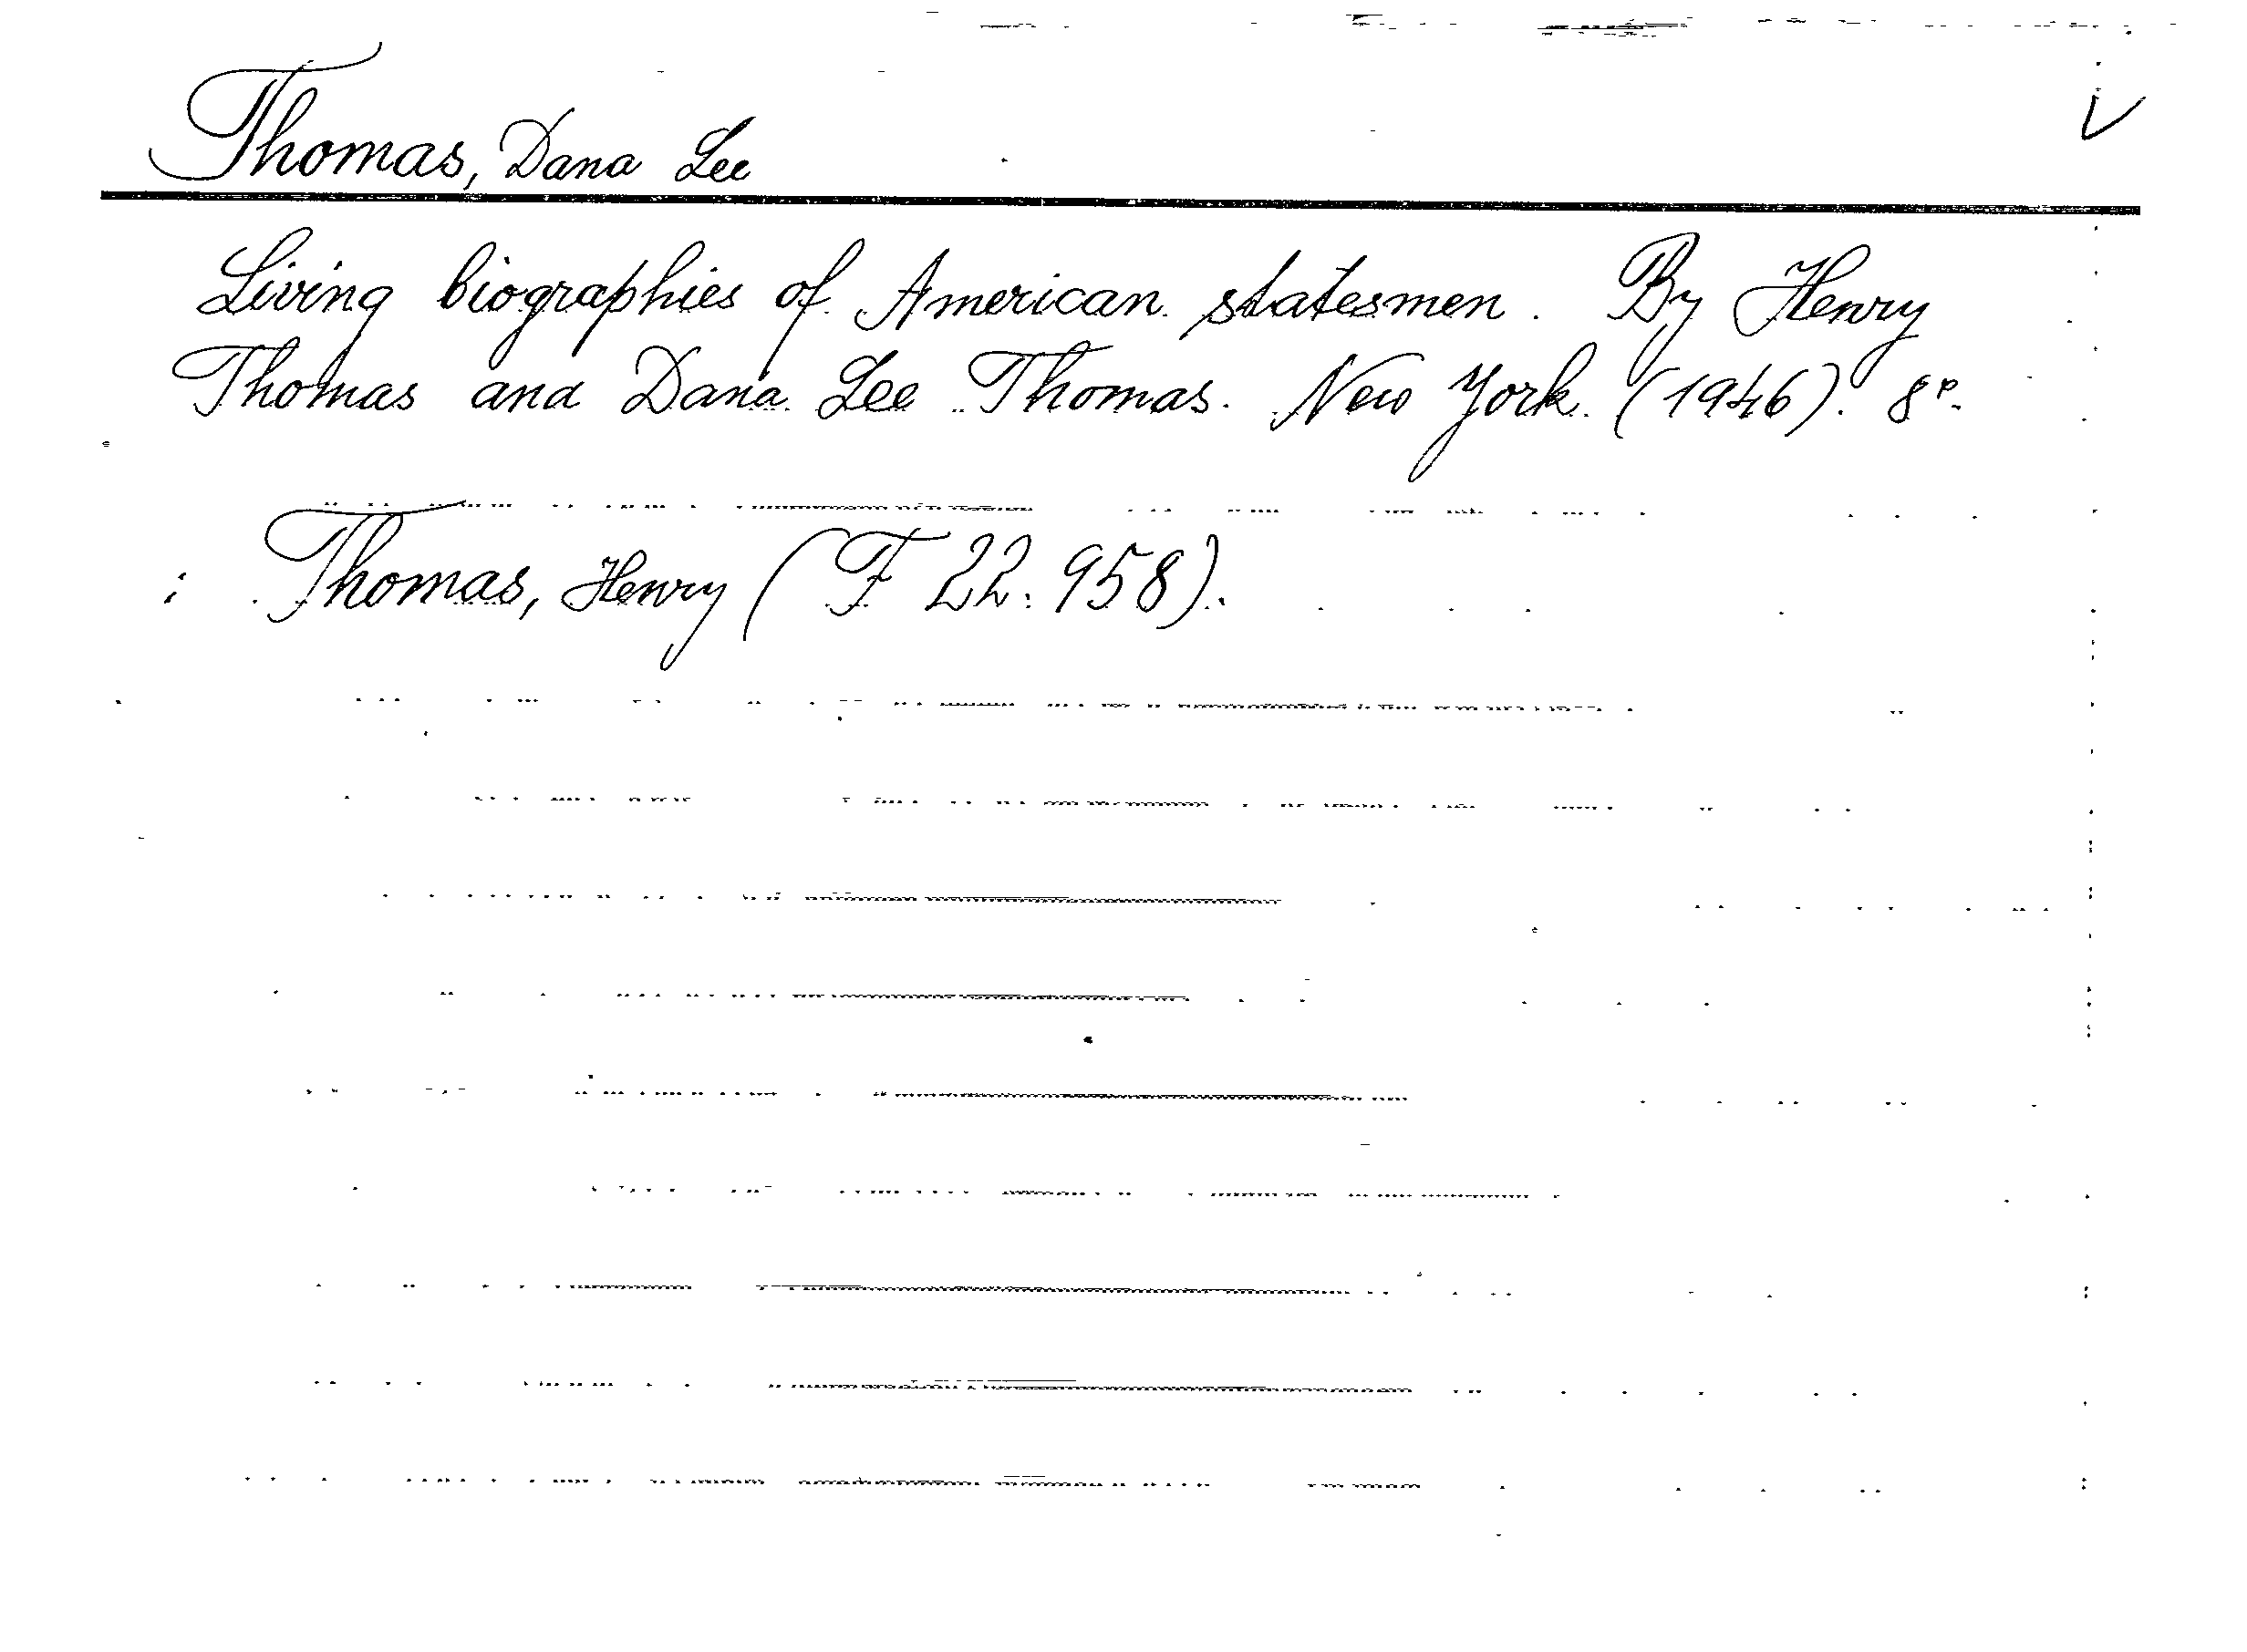 Thomas, Dana Lee
Living biographies of American statesmen. By Henry
Thomas and Dana Lee Thomas. New York. (1946). 8º.
: Thomas, Henry (F 22.958).